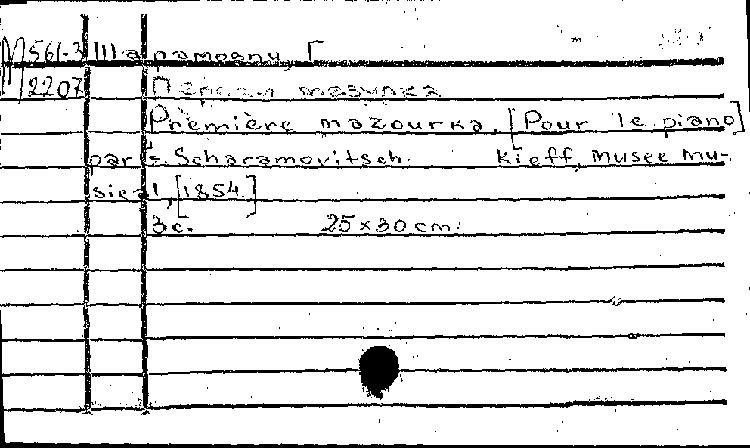 М 561-3 Шарамович, Г
2207 Первая мазурка
Première mazourka. [Pour le piano]
par G. Scharamovitsch. Kieff, Musee mu-
sical, [1854]
3 с. 25×30 cm.